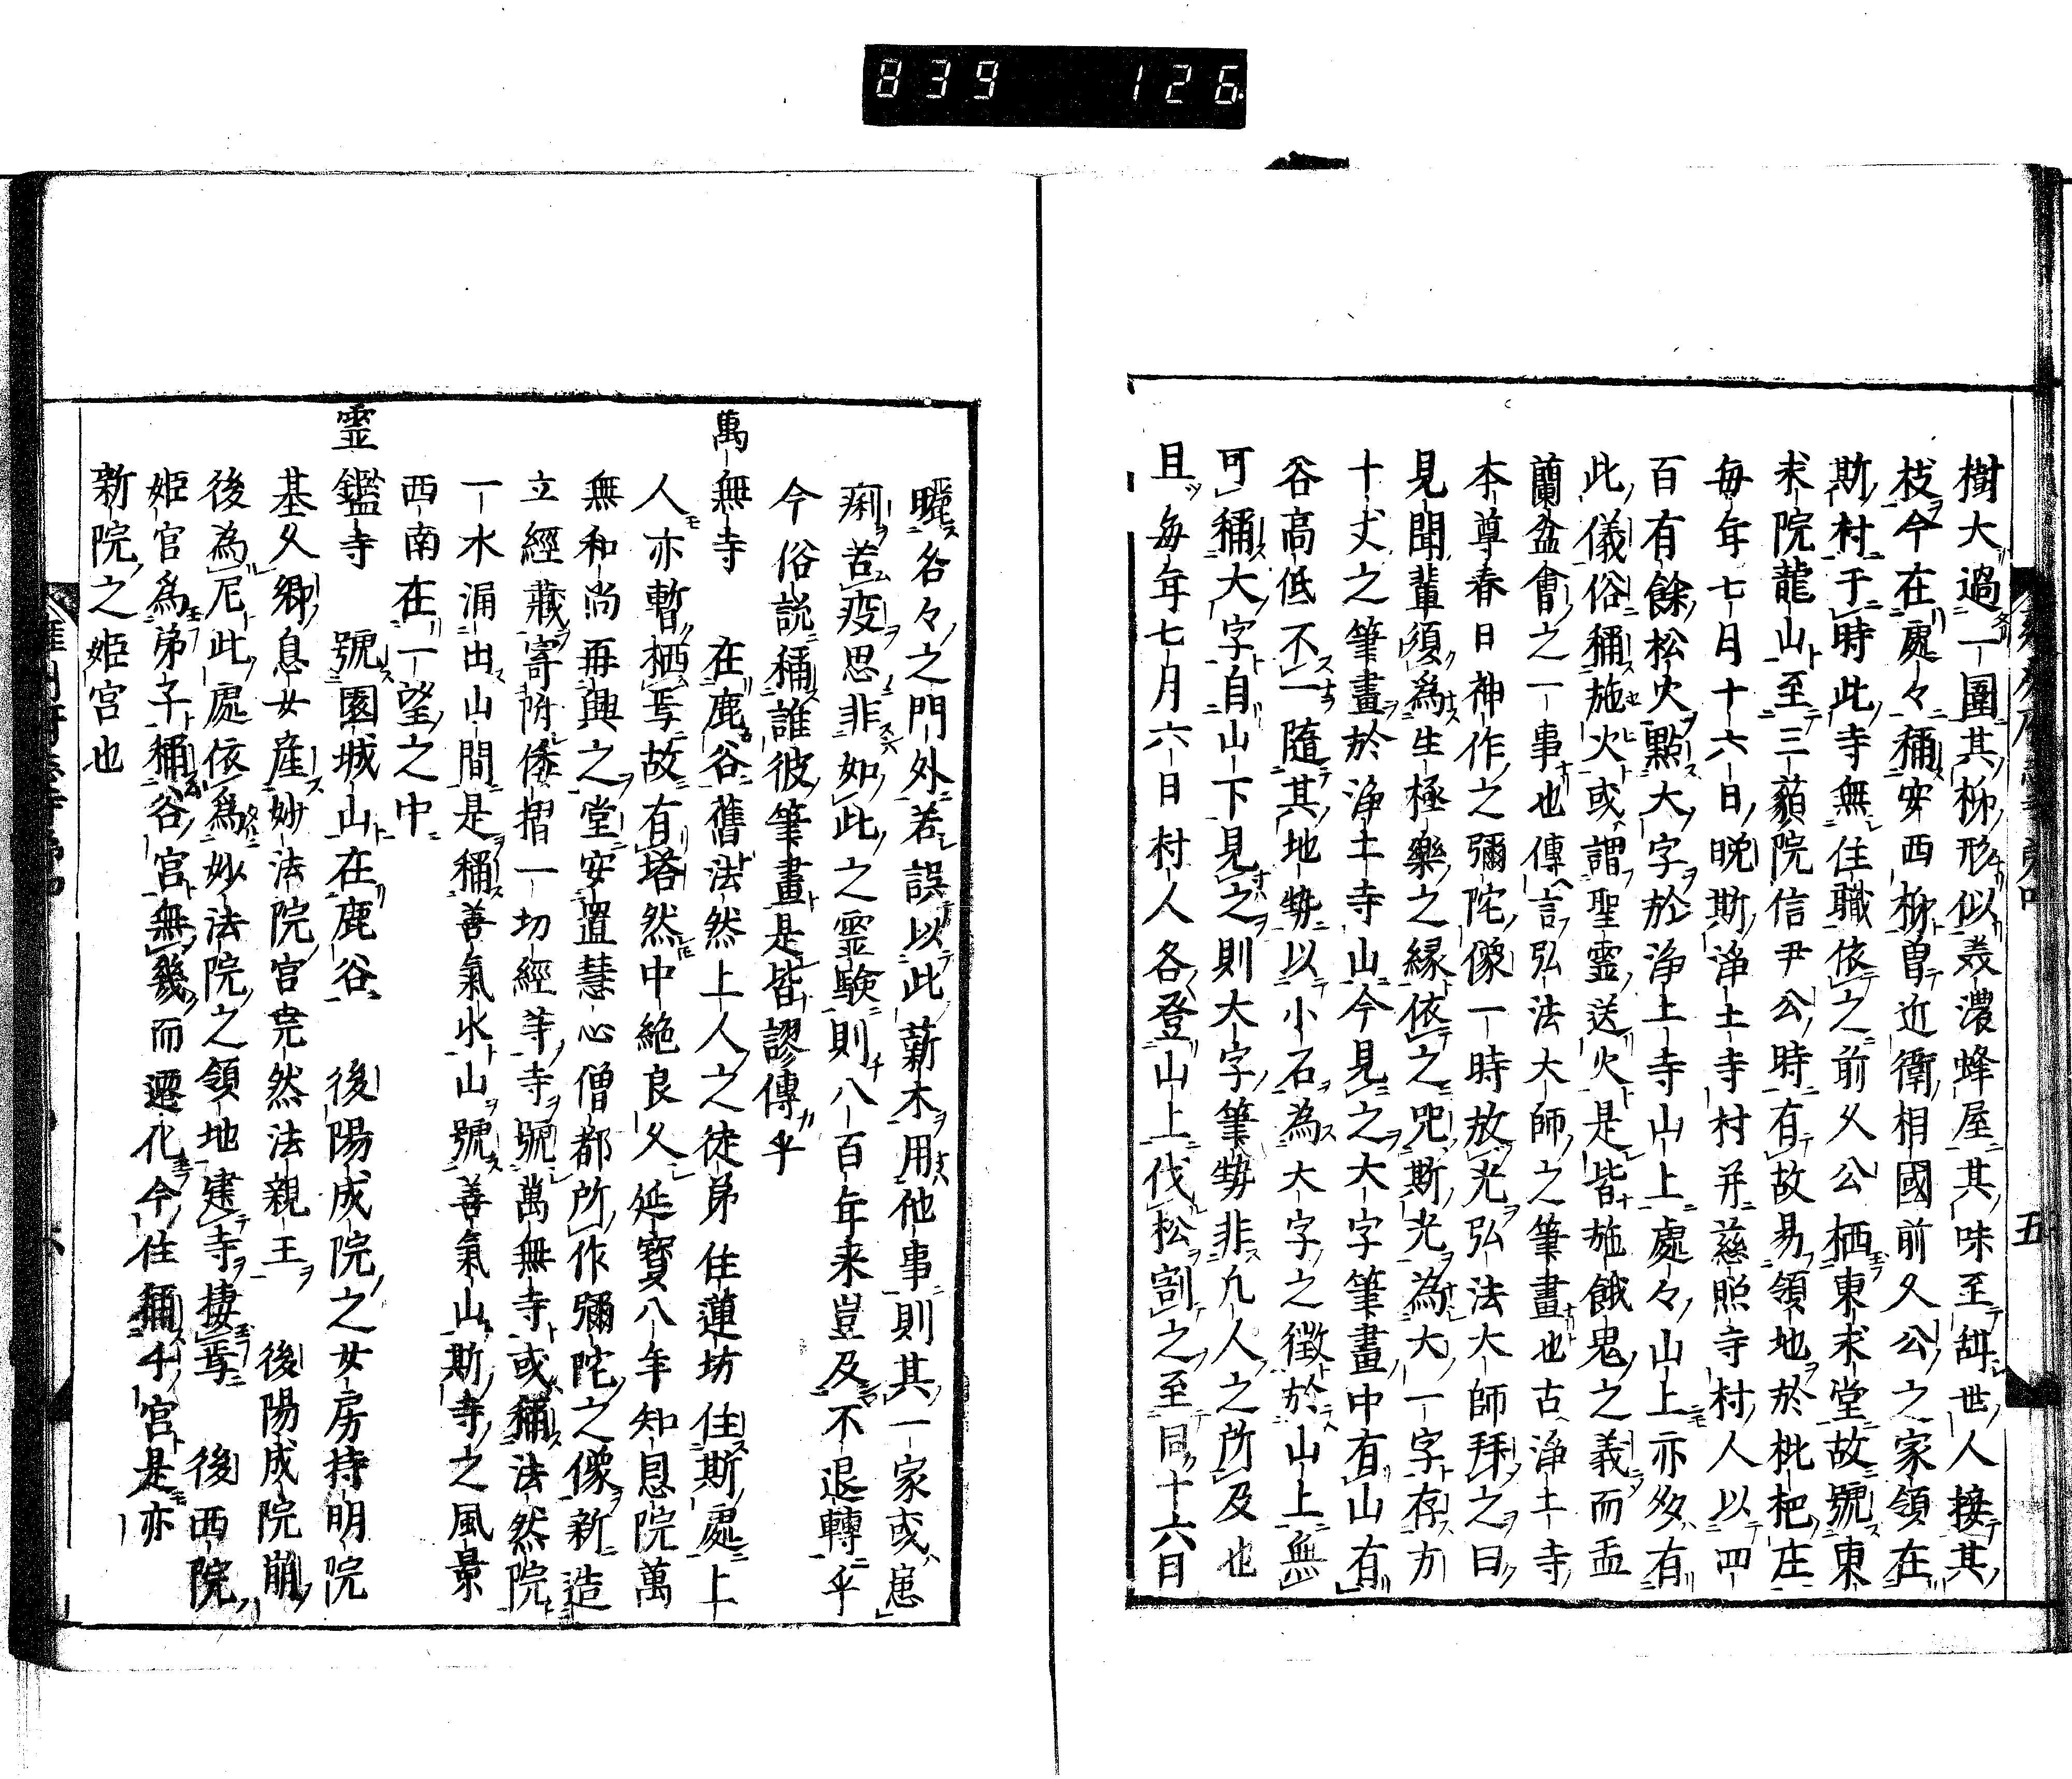 839 126
樹大過一圍其柹形似美濃蜂屋其味至甜世人接其
枝今在處々稱安西柹曽近衛相國前久公之家領在
斯村于時此寺無住職依之前久公栖東求堂故號東
求院龍山至三藐院信尹公時有故易領地於枇杷庄
毎年七月十六日晩斯浄土寺村并慈照寺村人以四
百有餘松火點大字於浄土寺山上處々山上亦多有
此儀俗稱施火或謂聖靈送火是皆施餓鬼之義而盂
蘭盆會之一事也傳言弘法大師之筆畫也古浄土寺
本尊春日神作之彌陀像一時放光弘法大師拜之曰
見聞輩須為生極樂之縁依之咒斯光為大一字存方
十丈之筆畫於浄土寺山今見之大字筆畫中有山有
谷高低不一隨其地勢以小石為大字之徴於山上無
可稱大字自山下見之則大字筆勢非凢人之所及也
且毎年七月六日村人各登山上伐松割之至同十六日
曬各々之門外若誤以此薪木用他事則其一家或患
痢苦疫思非如此之靈驗則八百年来豈及不退轉乎
今俗説稱誰彼筆畫是皆謬傳乎
萬無寺 在鹿谷舊法然上人之徒弟住蓮坊住斯處上
人亦暫栖焉故有塔然中絶良久延寳八年知恩院萬
無和尚再興之堂安置慧心僧都所作彌陀之像新造
立經藏寄附倭摺一切經等寺號萬無寺或稱法然院
一水涌出山間是稱善氣水山號善氣山斯寺之風景
西南在一望之中
靈鑑寺 號圓城山在鹿谷 後陽成院之女房持明院
基久卿息女産妙法院宮尭然法親王 後陽成院崩
後為尼此處依為妙法院之領地建寺棲焉 後西院
姫宮為弟子稱谷宮無幾而遷化今住稱千宮是亦
新院之姫宮也